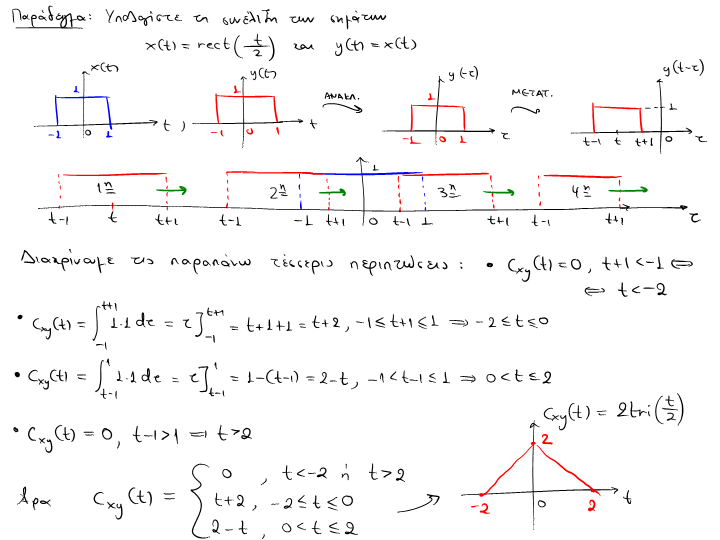 Παράδειγμα: Υπολογίστε τη συνέλιξη των σημάτων
x(t) = rect(t/2) και y(t) = x(t)
x(t) y(t) ΑΝΑΚΛ. y(-τ) ΜΕΤΑΤ. y(t-τ)
1 1 1 1
-1 0 1 t , -1 0 1 t -1 0 1 τ t-1 t t+1 0 τ
1
1η 2η 3η 4η
t-1 t t+1 t-1 -1 t+1 0 t-1 1 t+1 t-1 t+1 τ
Διακρίνουμε τις παραπάνω τέσσερις περιπτώσεις : • Cxy(t) = 0 , t+1 < -1 ⇔
⇔ t < -2
• Cxy(t) = ∫_{-1}^{t+1} 1.1 dτ = τ]_{-1}^{t+1} = t+1+1 = t+2 , -1 ≤ t+1 ≤ 1 ⇒ -2 ≤ t ≤ 0
• Cxy(t) = ∫_{t-1}^{1} 1.1 dτ = τ]_{t-1}^{1} = 1-(t-1) = 2-t , -1 < t-1 ≤ 1 ⇒ 0 < t ≤ 2
• Cxy(t) = 0 , t-1 > 1 ⇒ t > 2
Cxy(t) = 2tri(t/2)
2
-2 0 2 t
Άρα Cxy(t) = { 0 , t < -2 ή t > 2
t+2 , -2 ≤ t ≤ 0
2-t , 0 < t ≤ 2